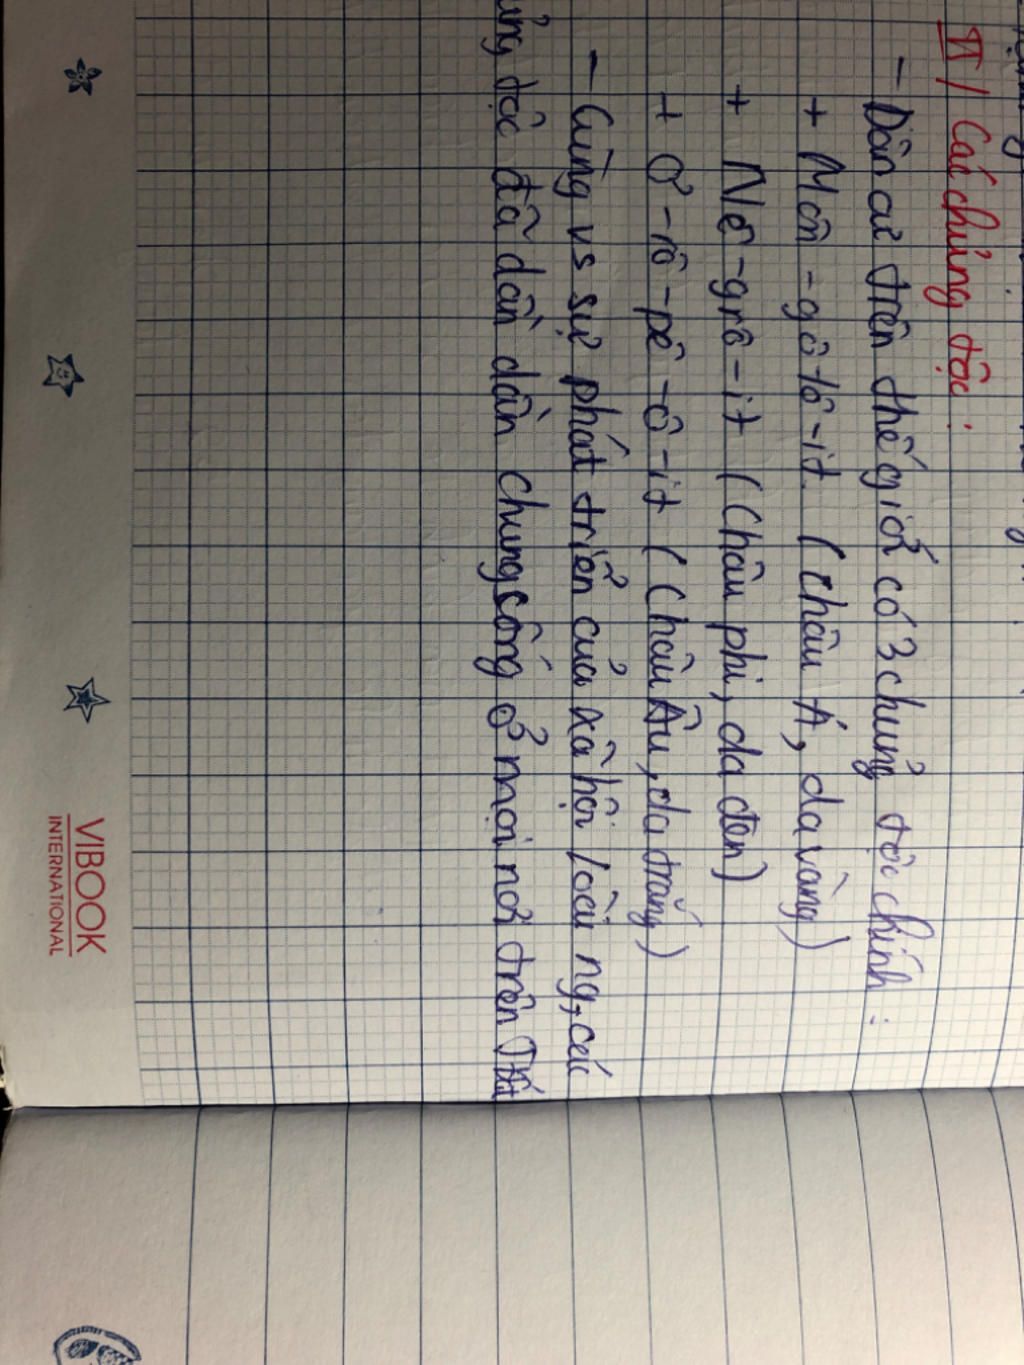 II / Các chủng tộc:
- Dân cư trên thế giới có 3 chủng tộc chính:
+ Môn-gô-lô-it. (Châu Á, da vàng)
+ Nê-grô-it (Châu phi, da đen)
+ Ơ-rô-pê-ô-it (Châu Âu, da trắng)
- Cùng vs sự phát triển của xã hội loài ng, các
tộc đã dần dần chung sống ở mọi nơi trên
VIBOOK
INTERNATIONAL